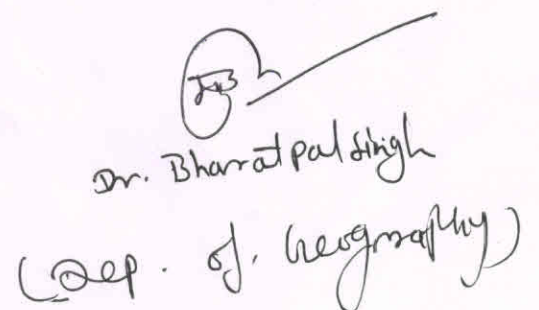 Dr. Bharat Pal Singh
(Dep. of. Geography)